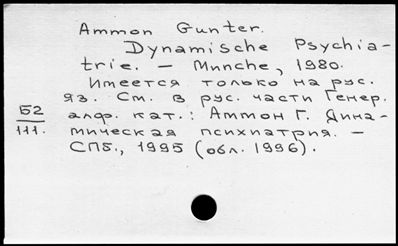 Ammon Gunter.
Dynamische Psychia-
trie. – Munche, 1980.
Имеется только на рус.
яз. См. в рус. части Генер.
алф. кат.: Аммон Г. Дина-
мическая психиатрия. –
СПб., 1995 (обл. 1996).
Б2
111.